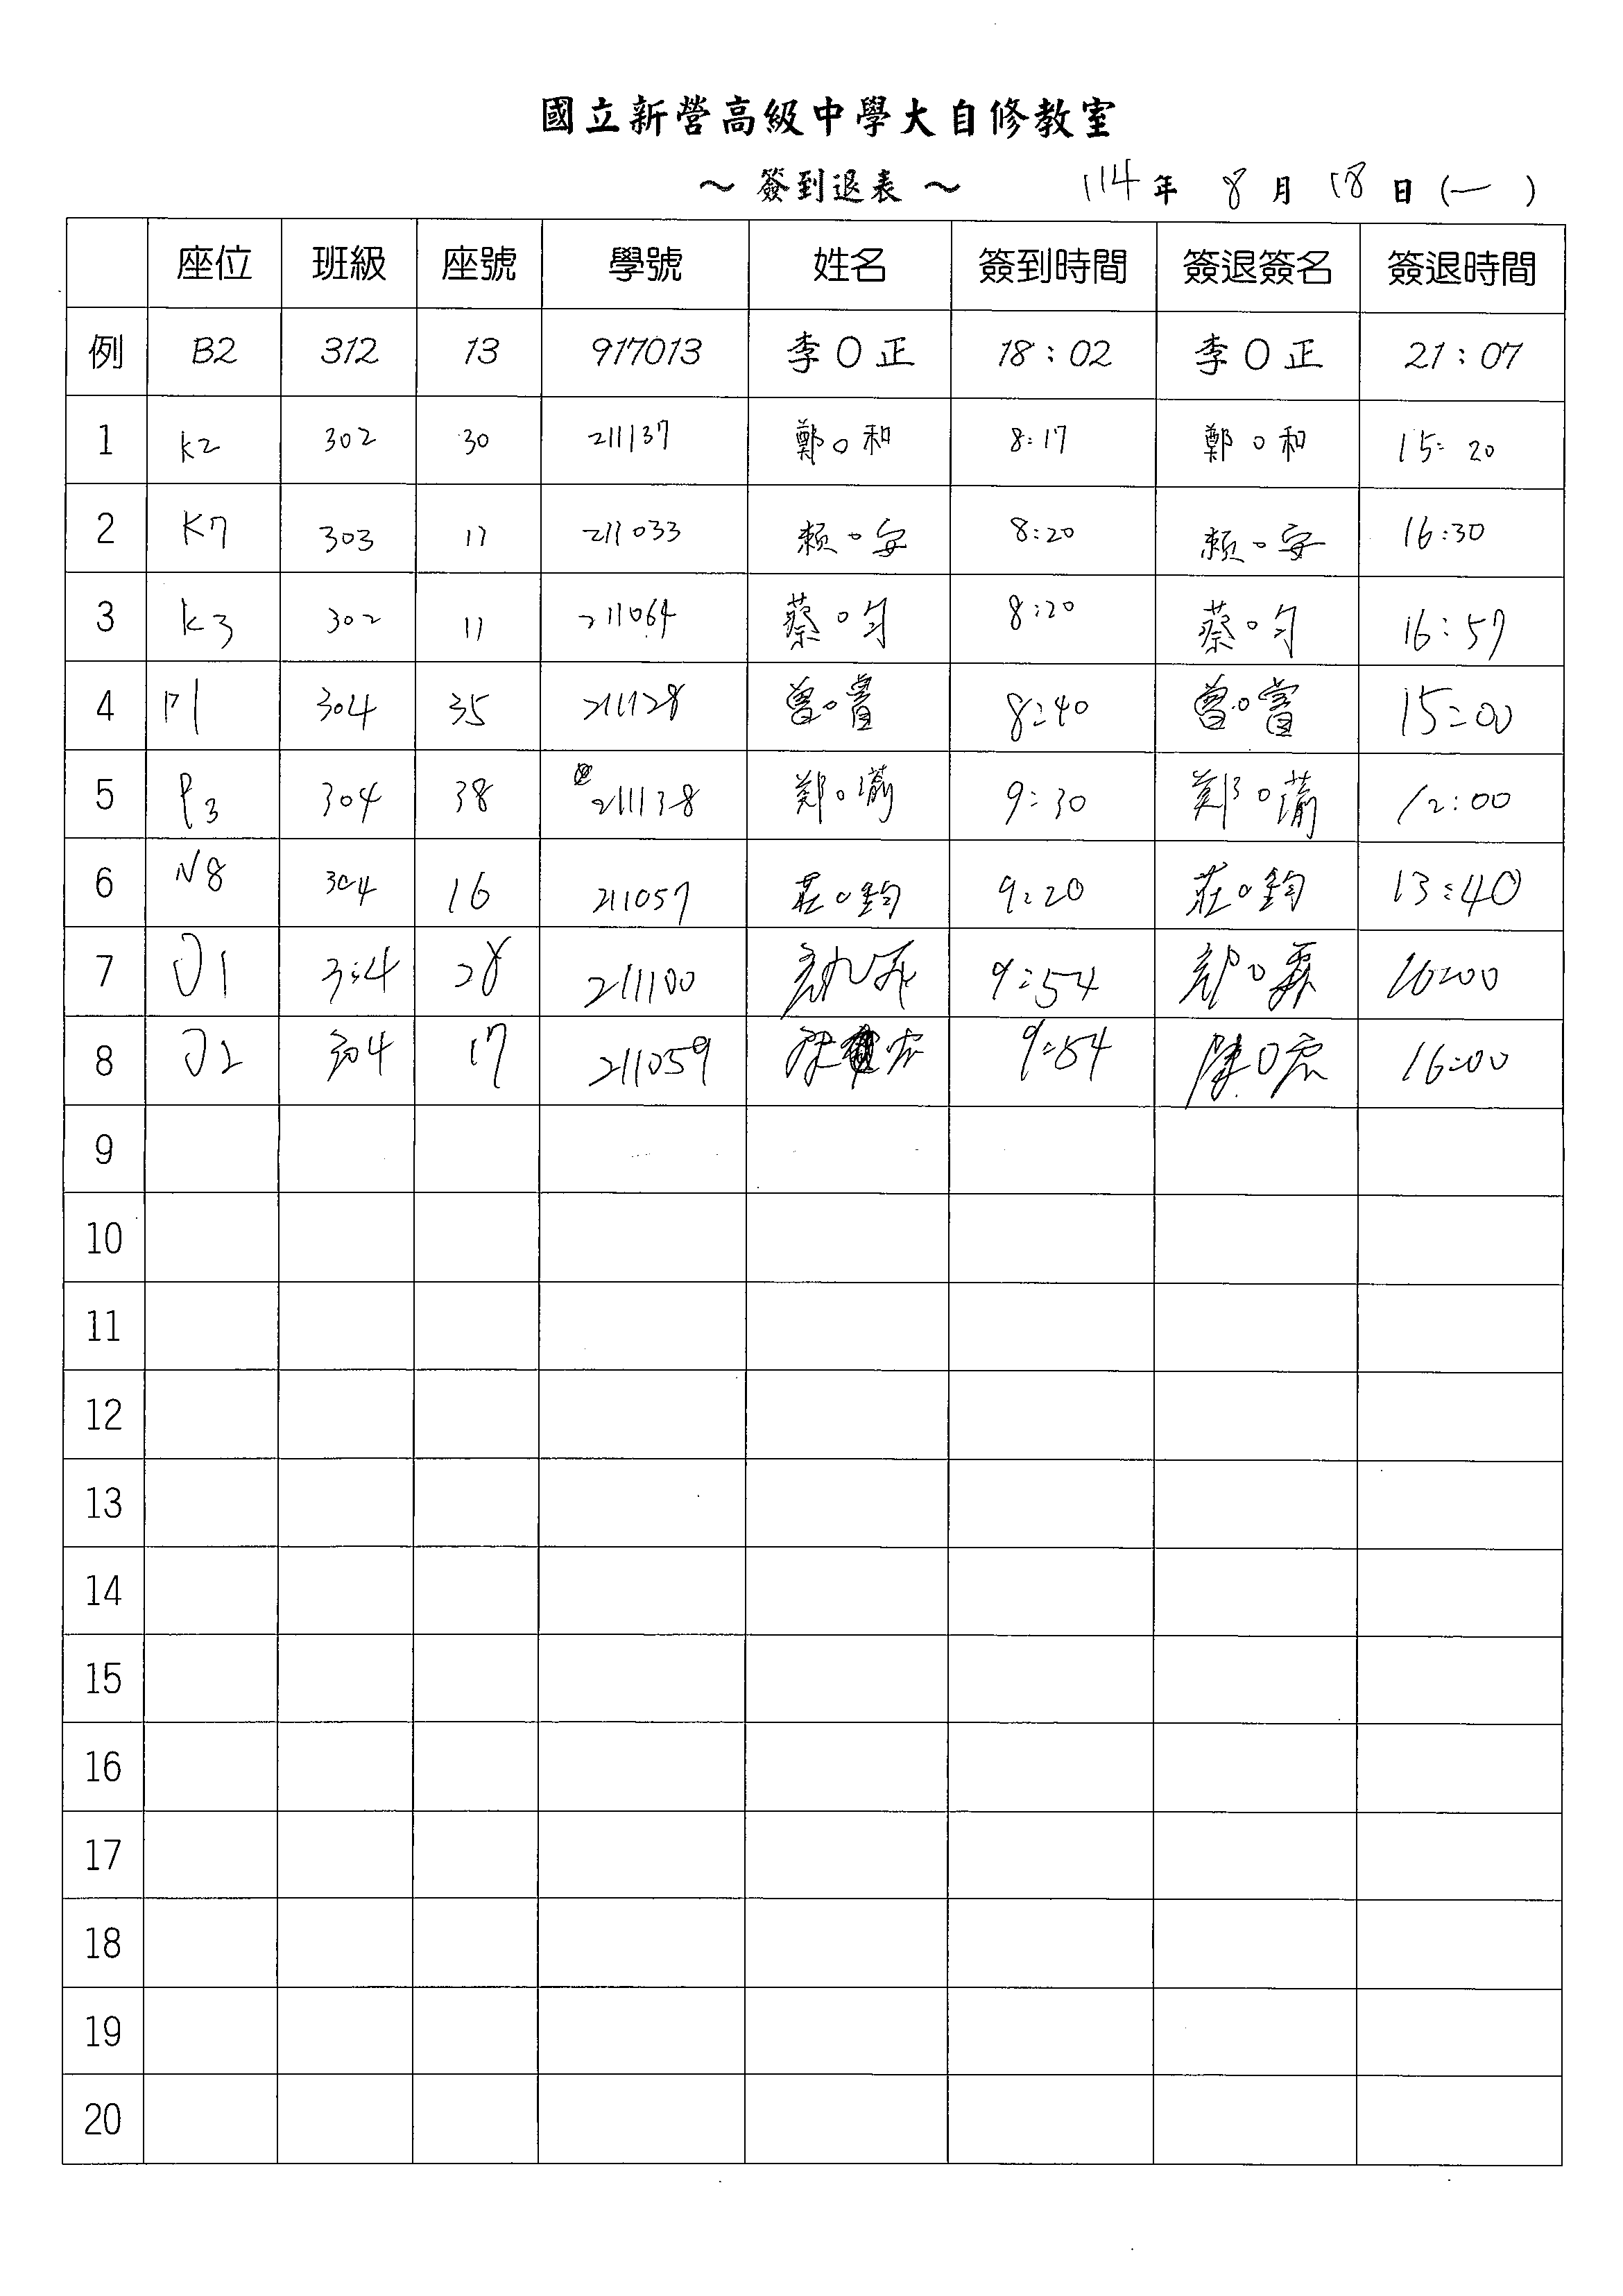 國立新營高級中學大自修教室
～ 簽到退表 ～ 114年 8月 18日(一)
座位 班級 座號 學號 姓名 簽到時間 簽退簽名 簽退時間
例 B2 312 13 917013 李O正 18:02 李O正 21:07
1 K2 302 30 211137 鄭O和 8:17 鄭O和 15:20
2 K7 303 11 211033 賴O安 8:20 賴O安 16:30
3 K3 302 11 211064 蔡O勻 8:20 蔡O勻 16:57
4 P1 304 35 211128 曾O 8:40 曾O 15:00
5 P3 304 38 211138 鄭O 9:30 鄭O 12:00
6 N8 304 16 211057 莊O鈞 9:20 莊O鈞 13:40
7 J1 304 28 211100 9:54 O霖 16:00
8 J2 304 17 211059 陳 宏 9:54 陳O宏 16:00
9
10
11
12
13
14
15
16
17
18
19
20